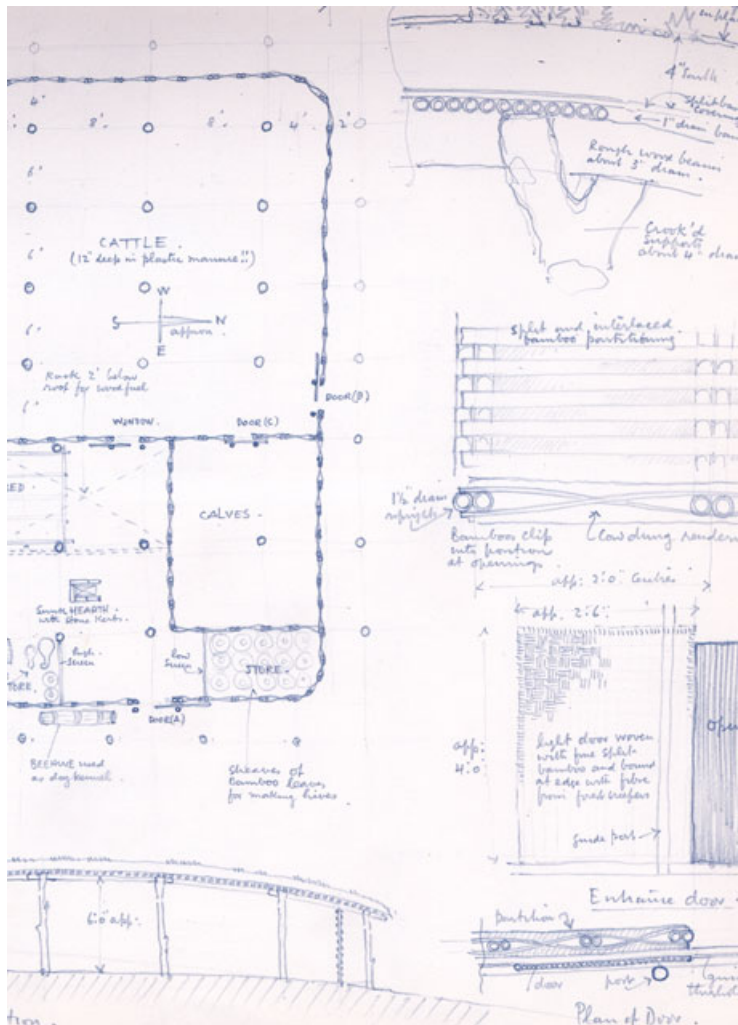 4'
8'
8'
4'
2'
6'
6'
6'
6'
CATTLE.
(12" deep in plastic manure!!)
W
S
N
E
approx
Rack 2' below
roof for woodfuel
WINDOW.
DOOR(C)
DOOR(B)
CALVES.
Sunk HEARTH
with stone kerbs.
high
screen
low
screen
STORE.
DOOR(A)
BEEHIVE used
as dog kennel
Sheaves of
Bamboo leaves
for making hives.
6'0" app:
4" South
Split bam
covering
1" diam bam
Rough wood beams
about 3" diam.
Crook'd
supports
about 4" diam
Split and interlaced
bamboo partitioning
1½" diam
uprights
Bamboos clip
into position
at openings.
Cow dung render
app: 2'0" Centres
app. 2'6"
app:
4'0
light door woven
with fine split-
bamboo and bound
at edge with fibre
from forest creepers
guide post
open
Entrance door.
partition
door
post
guide
threshold
Plan of Door.